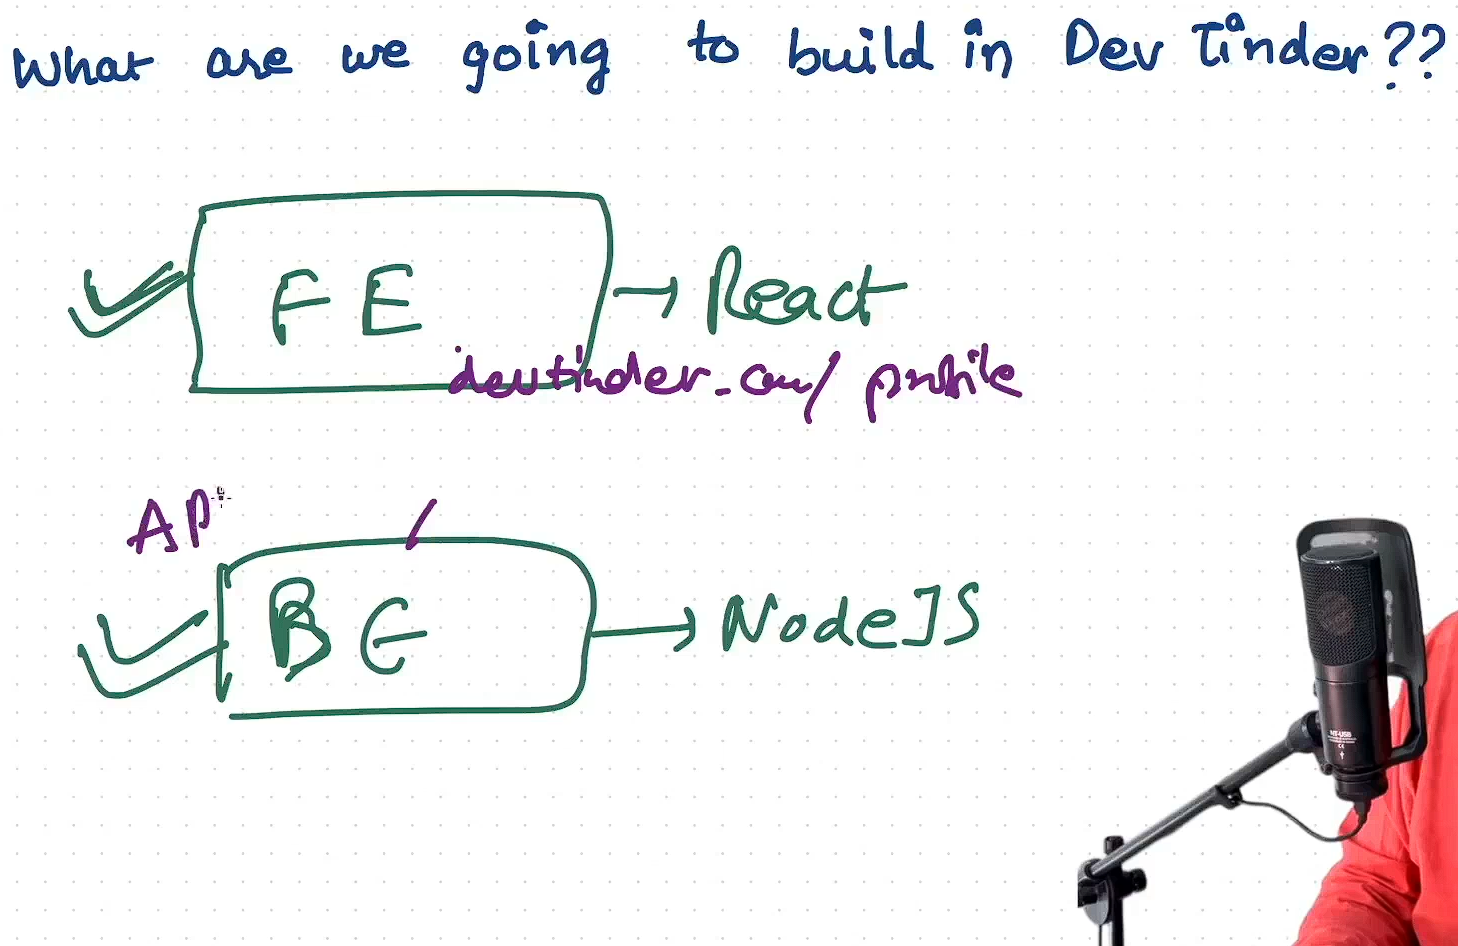 What are we going to build in Dev Tinder??
FE → React
devtinder.com/profile
AP
/
BE → NodeJS
NT-USB